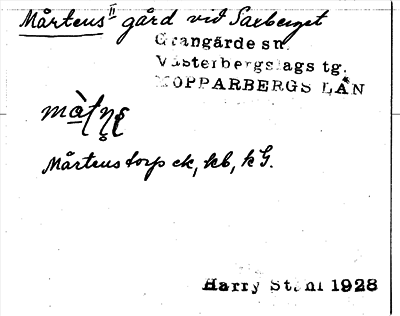 Mårtens II gård vid Saxberget
Grangärde sn.
Västerbergslags tg.
KOPPARBERGS LÄN
Mårtens torp ek, kb, kG.
Harry Ståhl 1928